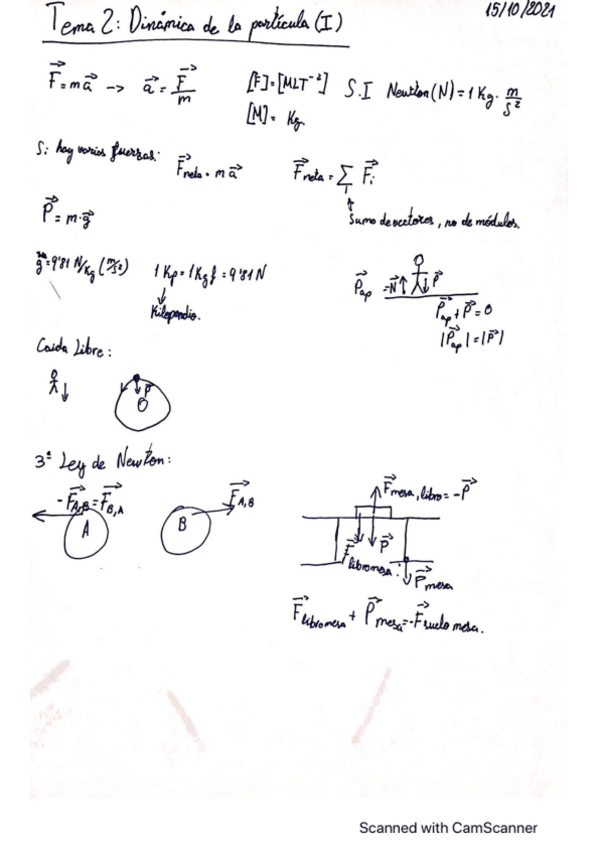 Tema 2: Dinámica de la partícula (I)
15/10/2021
F⃗ = m a⃗ -> a⃗ = F⃗/m [F] = [MLT⁻²] S.I Newton (N) = 1 Kg · m/s²
[M] = Kg
Si hay varias fuerzas: F⃗neta = m a⃗ F⃗neta = ∑i F⃗i
P⃗ = m·g⃗
Suma de vectores, no de módulos.
g⃗ = 9'81 N/Kg (m/s²) 1 Kp = 1 Kgf = 9'81 N
Kilopondio.
P⃗ap = N⃗ P⃗
P⃗ap + P⃗ = 0
|P⃗ap| = |P⃗|
Caída Libre:
P⃗
O
3ª Ley de Newton:
-F⃗A,B = F⃗B,A F⃗A,B
A B
F⃗mesa, libro = -P⃗
P⃗
F⃗libromesa
P⃗mesa
F⃗libromesa + P⃗mesa = -F⃗suelo mesa.
Scanned with CamScanner